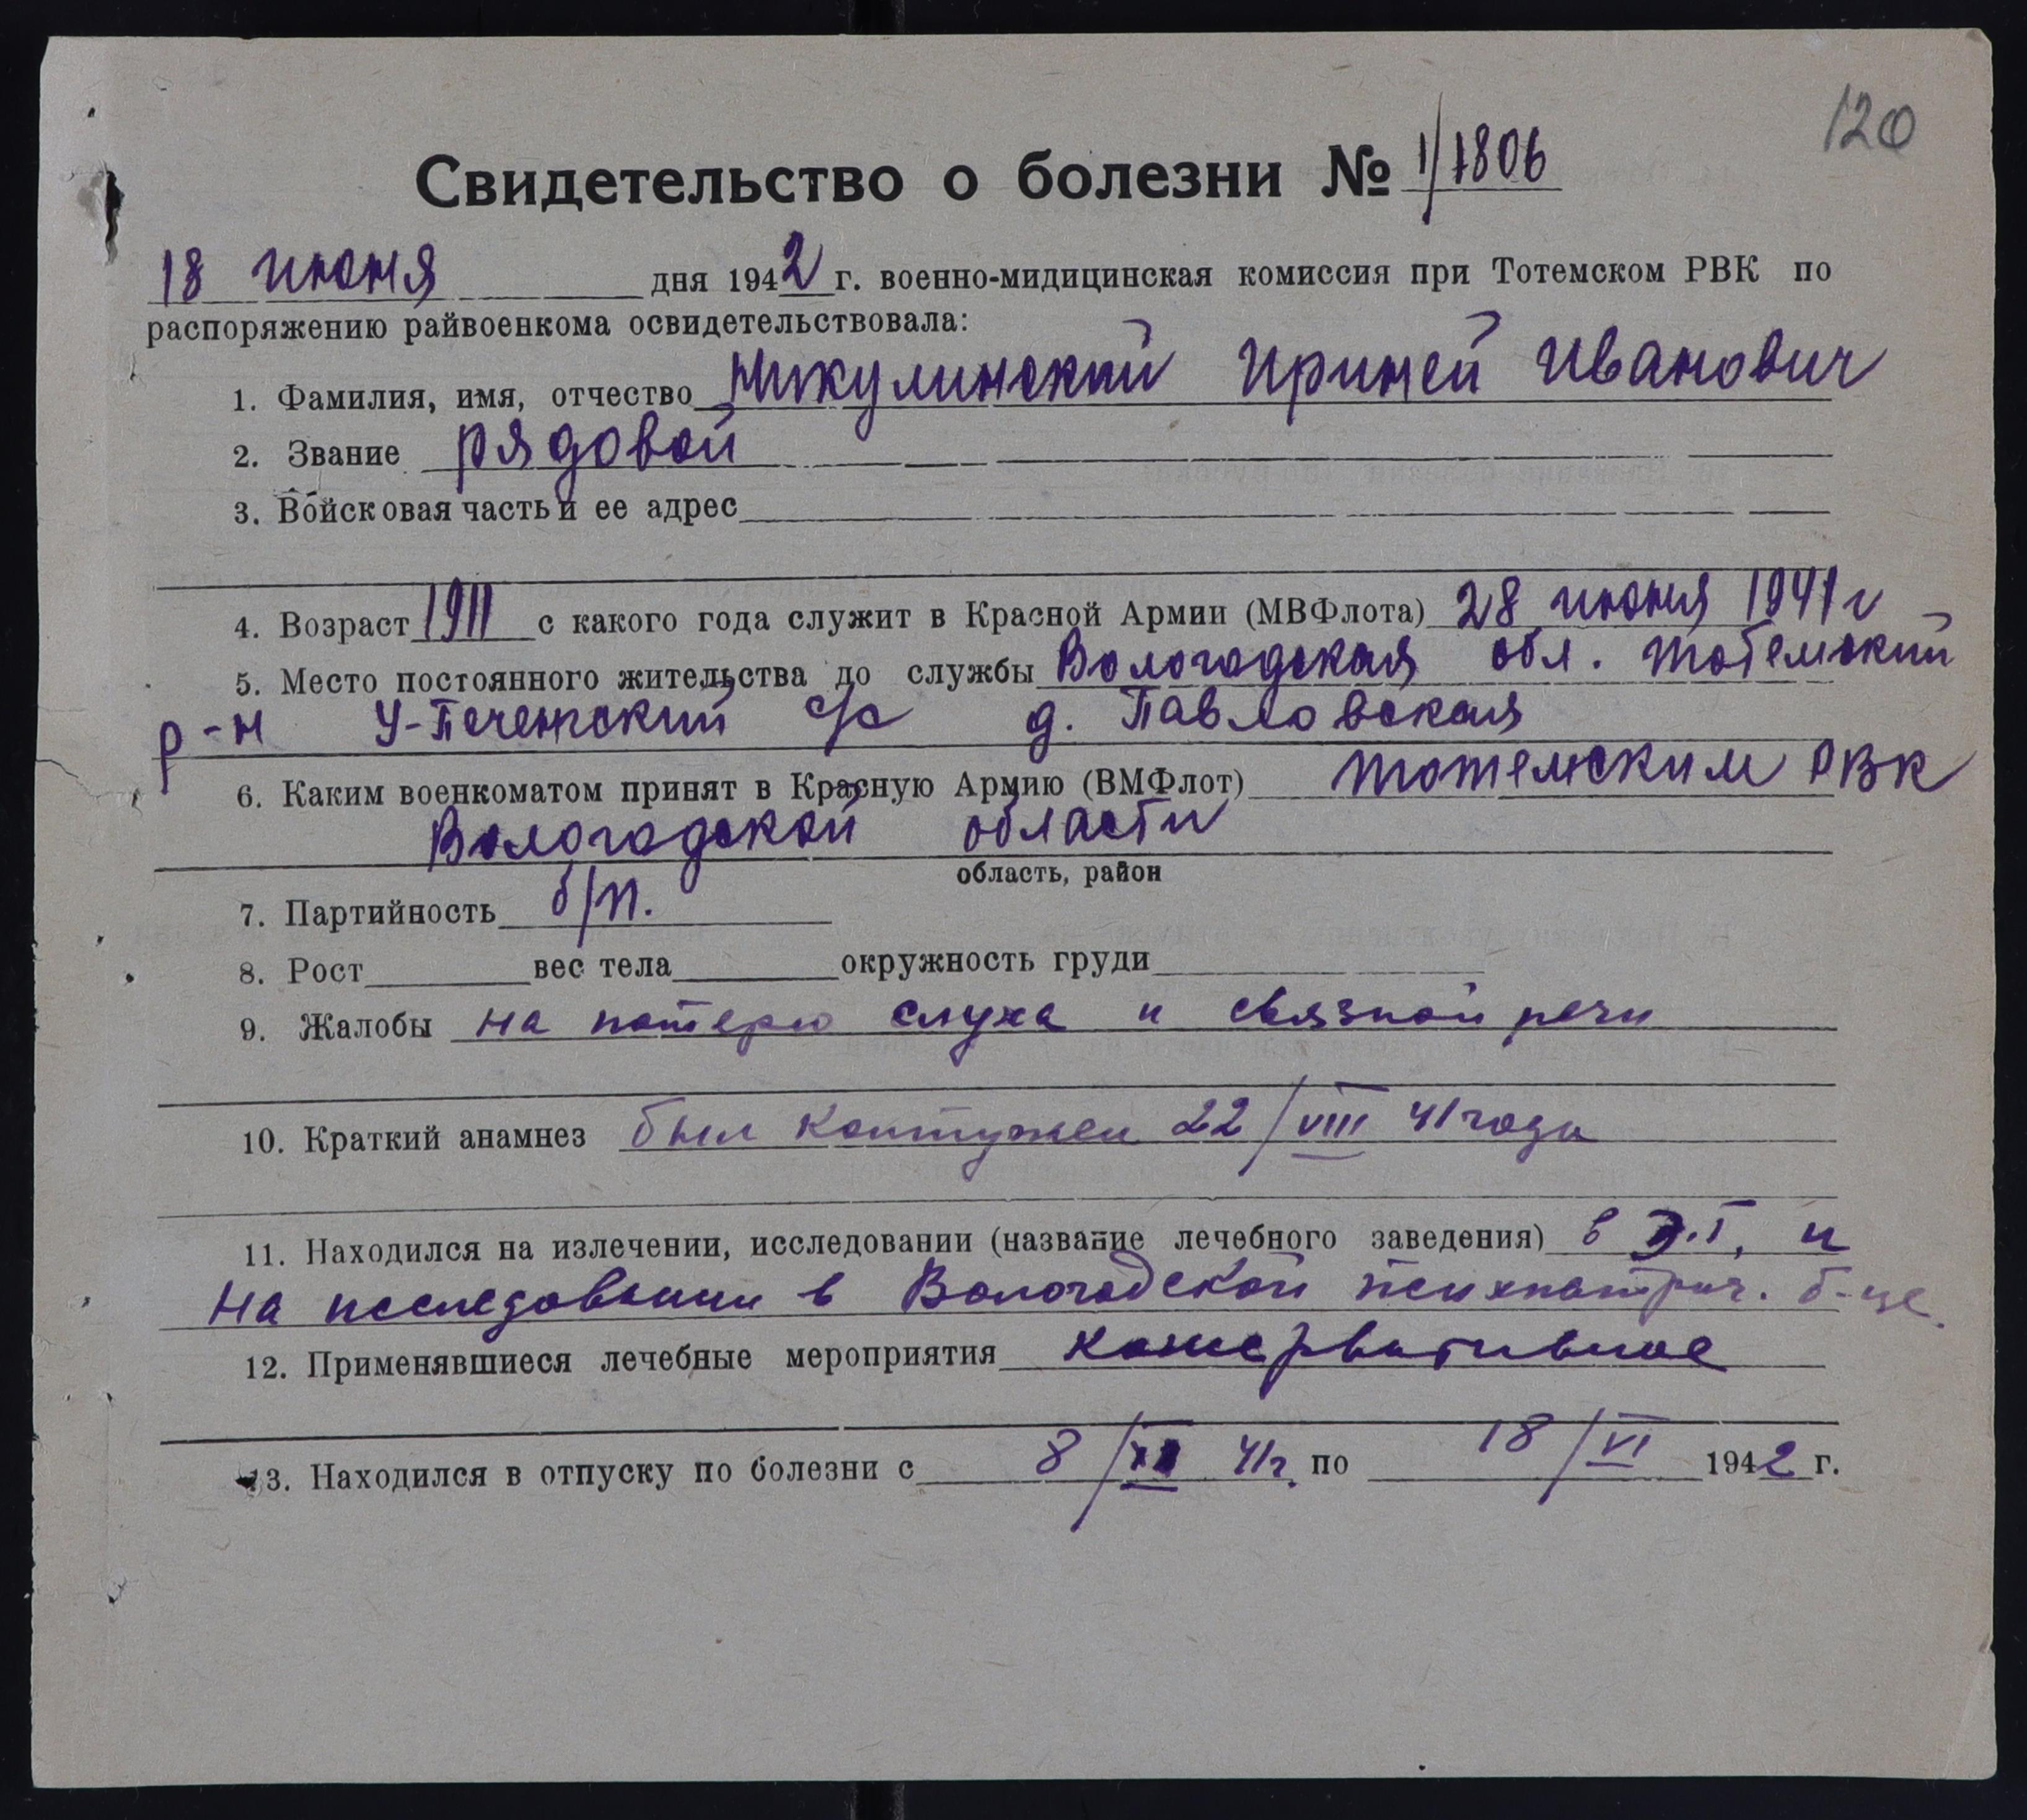 120
Свидетельство о болезни № 1/1806
18 июня дня 1942 г. военно-мидицинская комиссия при Тотемском РВК по
распоряжению райвоенкома освидетельствовала:
1. Фамилия, имя, отчество Никулинский Ириней Иванович
2. Звание рядовой
3. Войсковая часть и ее адрес
4. Возраст 1911 с какого года служит в Красной Армии (МВФлота) 28 июня 1941 г
5. Место постоянного жительства до службы Вологодская обл. Тотемский
р-н У-Печенгский с/с д. Павловская
6. Каким военкоматом принят в Красную Армию (ВМФлот) Тотемским РВК
Вологодской области
область, район
7. Партийность б/п.
8. Рост вес тела окружность груди
9. Жалобы на потерю слуха и связной речи
10. Краткий анамнез был контужен 22/VIII 41 года
11. Находился на излечении, исследовании (название лечебного заведения) в Э.Г, и
на исследовании в Вологодской психиатрич. б-це.
12. Применявшиеся лечебные мероприятия консервативное
13. Находился в отпуску по болезни с 8/ 41 г. по 18/VI 1942 г.